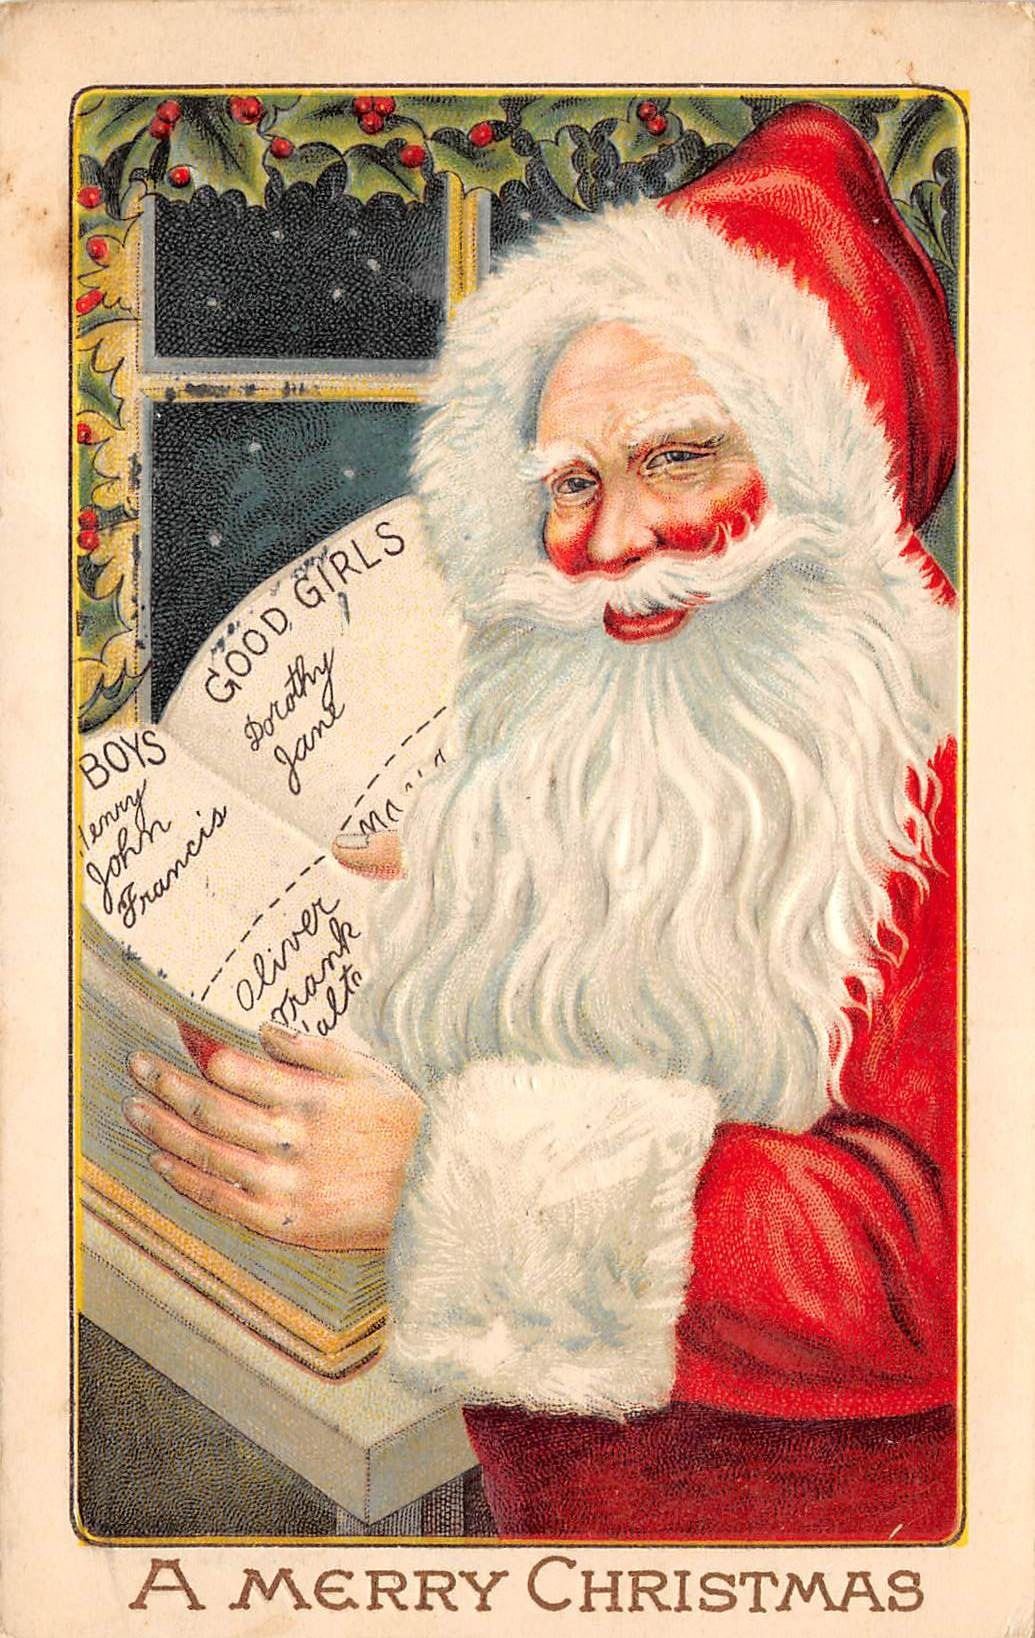 GOOD GIRLS
Dorothy
Jane
BOYS
Henry
John
Francis
Oliver
Frank
A MERRY CHRISTMAS